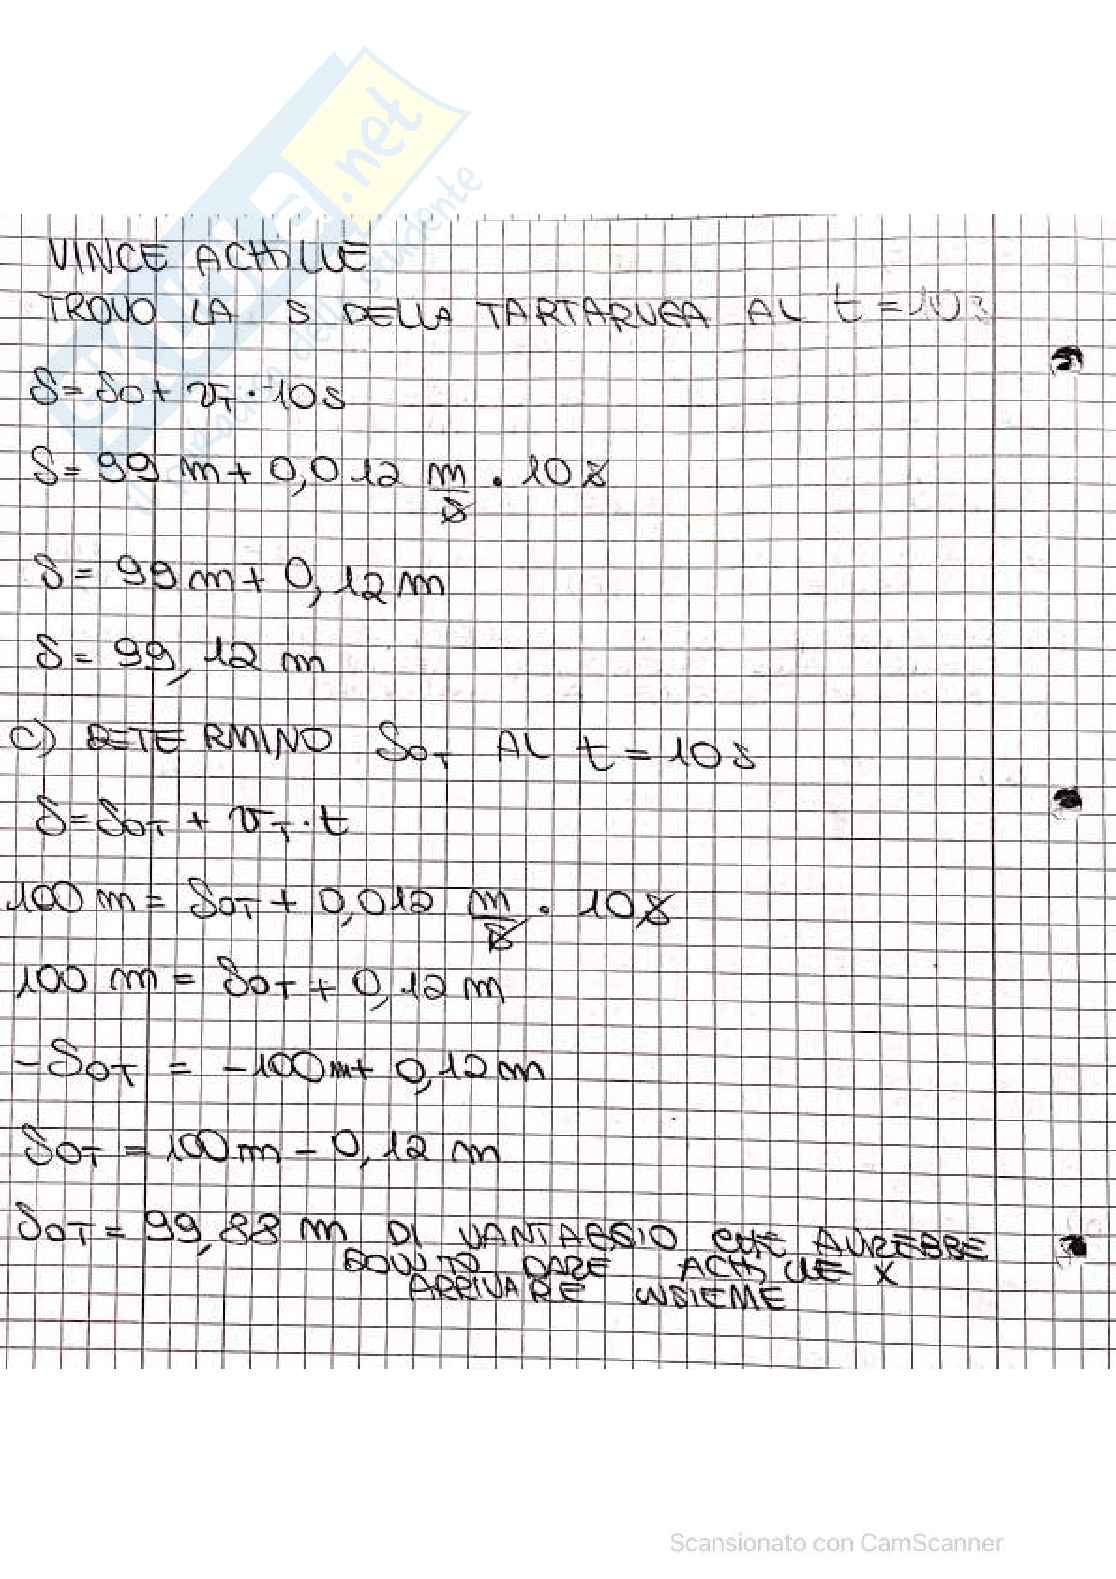 VINCE ACHILLE
TROVO LA S DELLA TARTARUGA AL t = 10s
S = S0 + vT · 10s
S = 99 m + 0,012 m/s · 10 s
S = 99 m + 0,12 m
S = 99,12 m
C) DETERMINO S0T AL t = 10 s
S = S0T + vT · t
100 m = S0T + 0,012 m/s · 10 s
100 m = S0T + 0,12 m
- S0T = - 100 m + 0,12 m
S0T = 100 m - 0,12 m
S0T = 99,88 m DI VANTAGGIO CHE AVREBBE
DOVUTO DARE ACHILLE X
ARRIVARE INSIEME
Scansionato con CamScanner